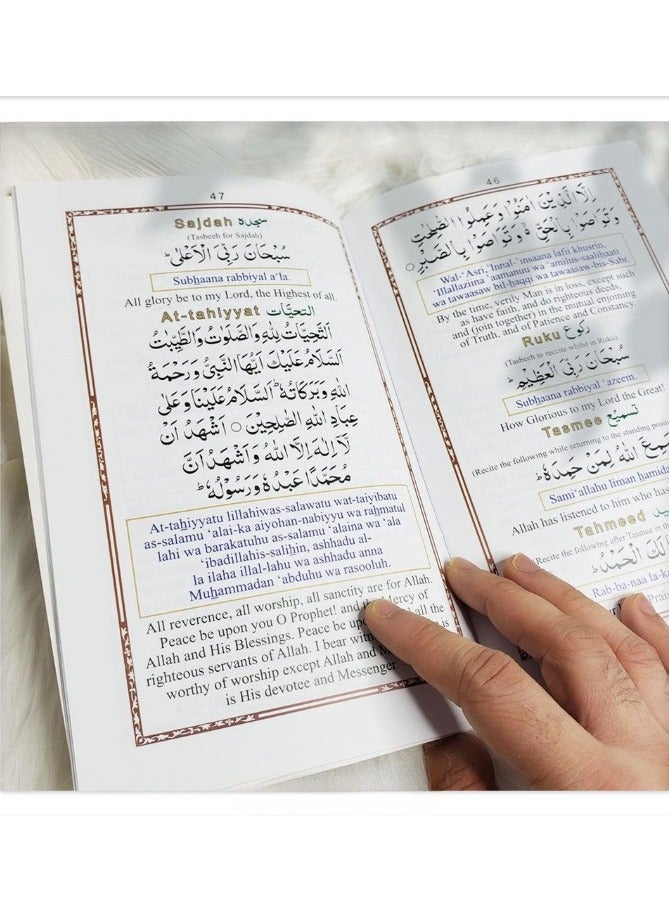 46
اِلَّا الَّذِيْنَ اٰمَنُوْا وَعَمِلُوا الصّٰلِحٰتِ
وَتَوَاصَوْا بِالْحَقِّ ۙ وَتَوَاصَوْا بِالصَّبْرِ ○
Wal-'Asri, 'Innal-'insaana lafii khusrin,
'Illallazina 'aamanuu wa 'amilus-saalihaati
wa tawaasaw bil-haqqi wa tawaasaw-bis-Sabr.
By the time, verily Man is in loss, except such
as have faith, and do righteous deeds,
and (join together) in the mutual enjoining
of Truth, and of Patience and Constancy
Ruku رکوع
(Tasbeeh to recite whilst in Ruku)
سُبْحَانَ رَبِّيَ الْعَظِيْمِ ؕ
Subhaana rabbiyal 'azeem.
How Glorious to my Lord the Great!
Tasmee تسمیع
(Recite the following while returning to the standing
اللهُ لِمَنْ حَمِدَهٗ ؕ
Sami 'allahu liman hamida
Allah has listened to him who
Tahmeed
(Recite the following after Tasmee
لَكَ الْحَمْدُ ؕ
Rab-ba-naa la-k
47
Sajdah سجدہ
(Tasbeeh for Sajdah)
سُبْحَانَ رَبِّيَ الْاَعْلٰى ؕ
Subhaana rabbiyal a'la.
All glory be to my Lord, the Highest of all.
At-tahiyyat التحیَّات
اَلتَّحِيَّاتُ لِلّٰهِ وَالصَّلَوٰتُ وَالطَّيِّبٰتُ
اَلسَّلَامُ عَلَيْكَ اَيُّهَا النَّبِيُّ وَرَحْمَةُ
اللهِ وَبَرَكَاتُهٗ ؕ اَلسَّلَامُ عَلَيْنَا وَعَلٰى
عِبَادِ اللهِ الصّٰلِحِيْنَ ○ اَشْهَدُ اَنْ
لَّآ اِلٰهَ اِلَّا اللهُ وَاَشْهَدُ اَنَّ
مُحَمَّدًا عَبْدُهٗ وَرَسُوْلُهٗ ؕ
At-tahiyyatu lillahiwas-salawatu wat-taiyibatu
as-salamu 'alai-ka aiyohan-nabiyyu wa rahmatul
lahi wa barakatuhu as-salamu 'alaina wa 'ala
'ibadillahis-salihin, ashhadu al-
la ilaha illal-lahu wa ashhadu anna
Muhammadan 'abduhu wa rasooluh.
All reverence, all worship, all sanctity are for Allah.
Peace be upon you O Prophet! and the Mercy of
Allah and His Blessings. Peace be all the
righteous servants of Allah. I bear is
worthy of worship except Allah and
is His devotee and Messenger.